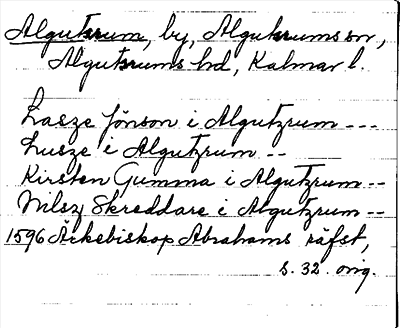 Algutsrum, by, Algutsrums sn,
Algutsrums hd, Kalmar l.
Lasze Jönson i Algutzrum ---
Lusze i Algutzrum --
Kirsten Gumma i Algutzrum --
Nilsz Skreddare i Algutzrum --
1596 Ärkebiskop Abrahams räfst,
s. 32. orig.